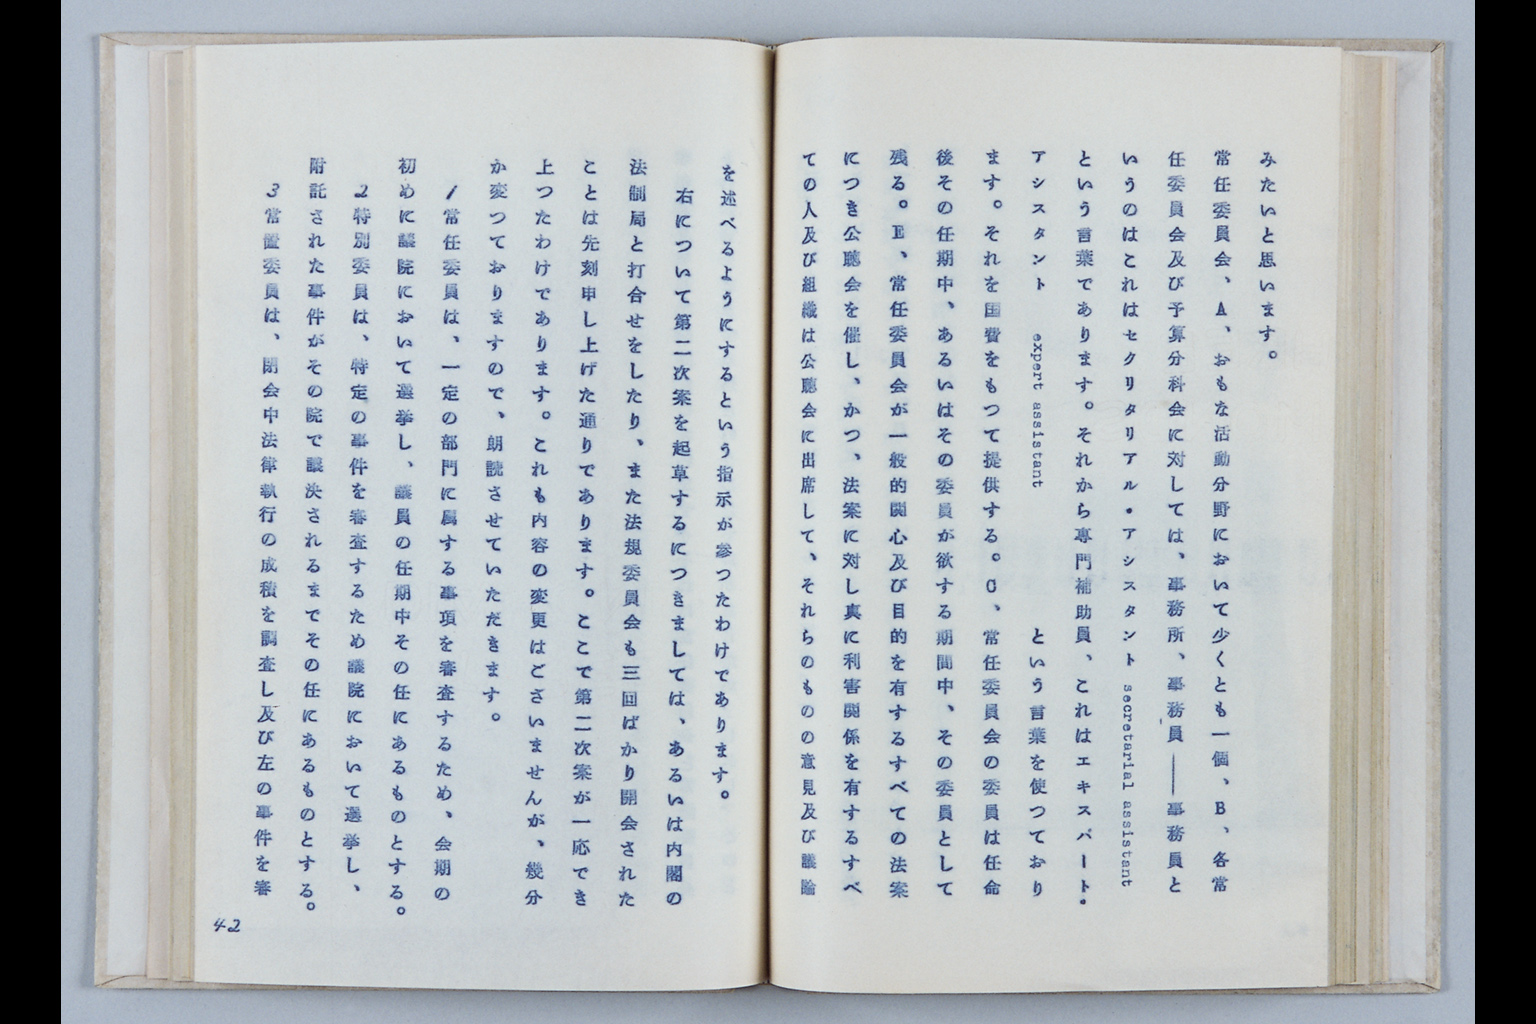 みたいと思います。
常任委員会、A、おもな活動分野において少くとも一個、B、各常
任委員会及び予算分科会に対しては、事務所、事務員――事務員と
いうのはこれはセクリタリアル・アシスタント secretarial assistant
という言葉であります。それから専門補助員、これはエキスパート・
アシスタント expert assistant という言葉を使つており
ます。それを国費をもつて提供する。C、常任委員会の委員は任命
後その任期中、あるいはその委員が欲する期間中、その委員として
残る。E、常任委員会が一般的関心及び目的を有するすべての法案
につき公聴会を催し、かつ、法案に対し真に利害関係を有するすべ
ての人及び組織は公聴会に出席して、それらのものの意見及び議論
を述べるようにするという指示が参つたわけであります。
右について第二次案を起草するにつきましては、あるいは内閣の
法制局と打合せをしたり、また法規委員会も三回ばかり開会された
ことは先刻申し上げた通りであります。ここで第二次案が一応でき
上つたわけであります。これも内容の変更はございませんが、幾分
か変つておりますので、朗読させていただきます。
1常任委員は、一定の部門に属する事項を審査するため、会期の
初めに議院において選挙し、議員の任期中その任にあるものとする。
2特別委員は、特定の事件を審査するため議院において選挙し、
附託された事件がその院で議決されるまでその任にあるものとする。
3常置委員は、閉会中法律執行の成積を調査し及び左の事件を審
42